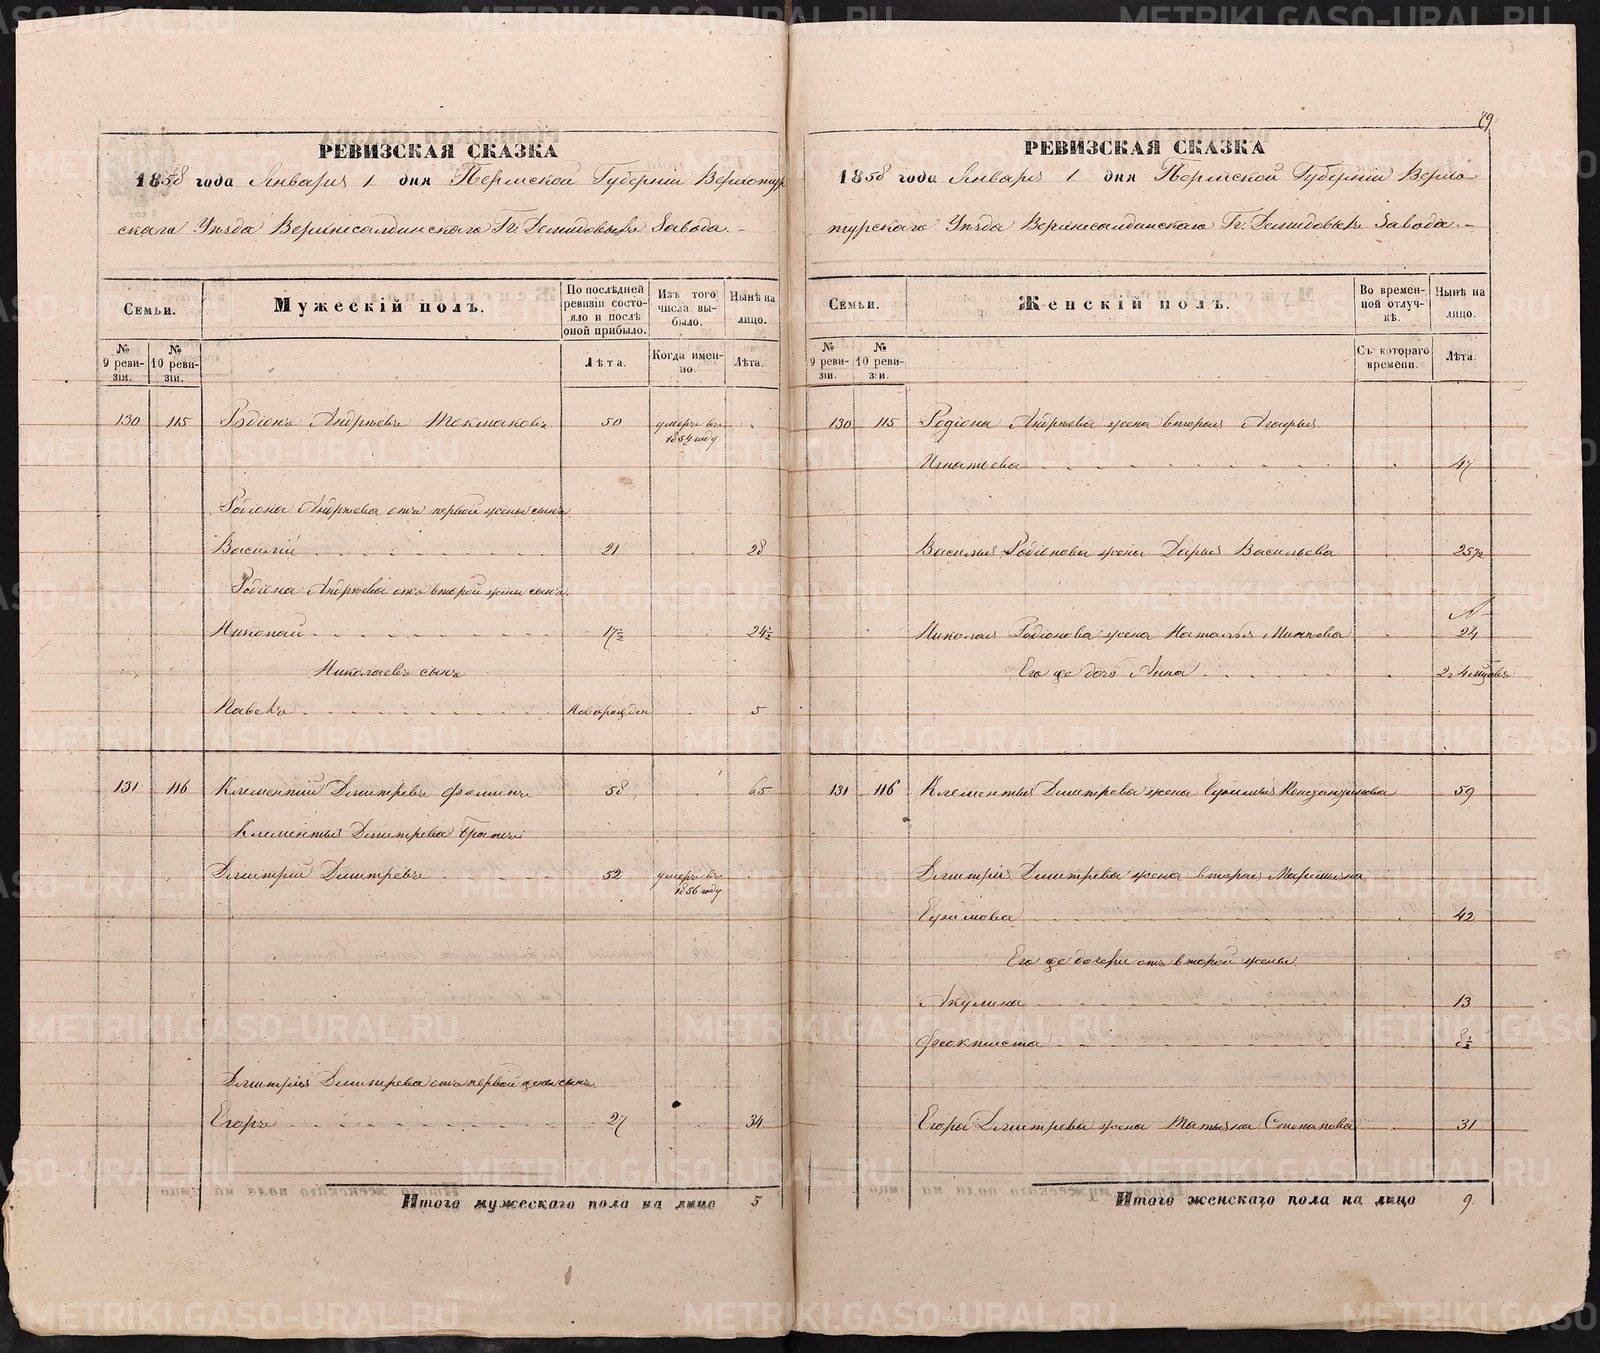 РЕВИЗСКАЯ СКАЗКА
1858 года Января 1 дня Пермской Губерніи Верхотур
скаго Уѣзда Верхнесалдинскаго Гг. Демидовыхъ Завода.
Семьи.
Мужескій полъ.
По послѣдней ревизіи состояло и послѣ оной прибыло.
Изъ того числа выбыло.
Нынѣ на лицо.
№ 9 ревизіи.
№ 10 ревизіи.
Лѣта.
Когда именно.
Лѣта.
130 115 Родіонъ Андреевъ Токмаковъ 50 умеръ въ 1854 году
Родіона Андреева отъ первой жены сынъ
Василій 21 28
Родіона Андреева отъ второй жены сынъ
Николай 17½ 24½
Николаевъ сынъ
Павелъ новорожден 5
131 116 Клементій Дмитревъ Фоминъ 58 65
Клементья Дмитрева братъ
Дмитрій Дмитревъ 52 умеръ въ 1856 году
Дмитрія Дмитрева отъ первой жены сынъ
Егоръ 27 34
Итого мужескаго пола на лицо 5
79
РЕВИЗСКАЯ СКАЗКА
1858 года Января 1 дня Пермской Губерніи Верхо
турскаго Уѣзда Верхнесалдинскаго Гг. Демидовыхъ Завода.
Семьи.
Женскій полъ.
Во временной отлучкѣ.
Нынѣ на лицо.
№ 9 ревизіи.
№ 10 ревизіи.
Съ котораго времени.
Лѣта.
130 115 Родіона Андреева жена вторая Агафья
Игнатьева 47
Василья Родіонова жена Дарья Васильева 25½
Николая Родіонова жена Наталья 24
Его же дочь Анна 2 и 4 мѣсяц
131 116 Клементья Дмитрева жена Ефимья Константинова 59
Дмитрія Дмитрева жена вторая Маремьяна
Ефимова 42
Его же дочери отъ второй жены
Акулина 13
Феоктиста 8½
Егора Дмитрева жена Татьяна Степанова 31
Итого женскаго пола на лицо 9
METRIKI.GASO-URAL.RU